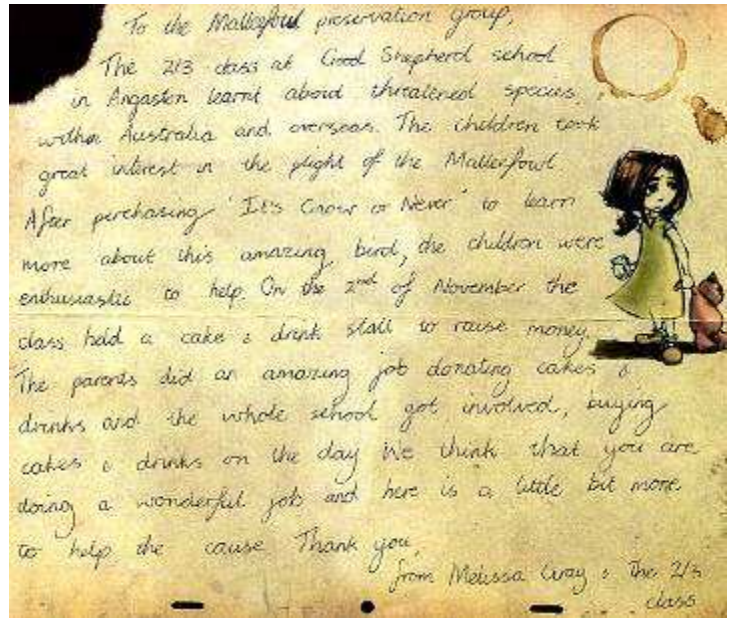 To the Malleefowl preservation group,
The 2/3 class at Good Shepherd school
in Angaston learnt about threatened species,
within Australia and overseas. The children took
great interest in the plight of the Malleefowl
After purchasing 'It's Gnow or Never' to learn
more about this amazing bird, the children were
enthusiastic to help. On the 2nd of November the
class held a cake & drink stall to raise money
The parents did an amazing job donating cakes &
drinks and the whole school got involved, buying
cakes & drinks on the day We think that you are
doing a wonderful job and here is a little bit more
to help the cause Thank you,
from Melissa Wray & The 2/3
class